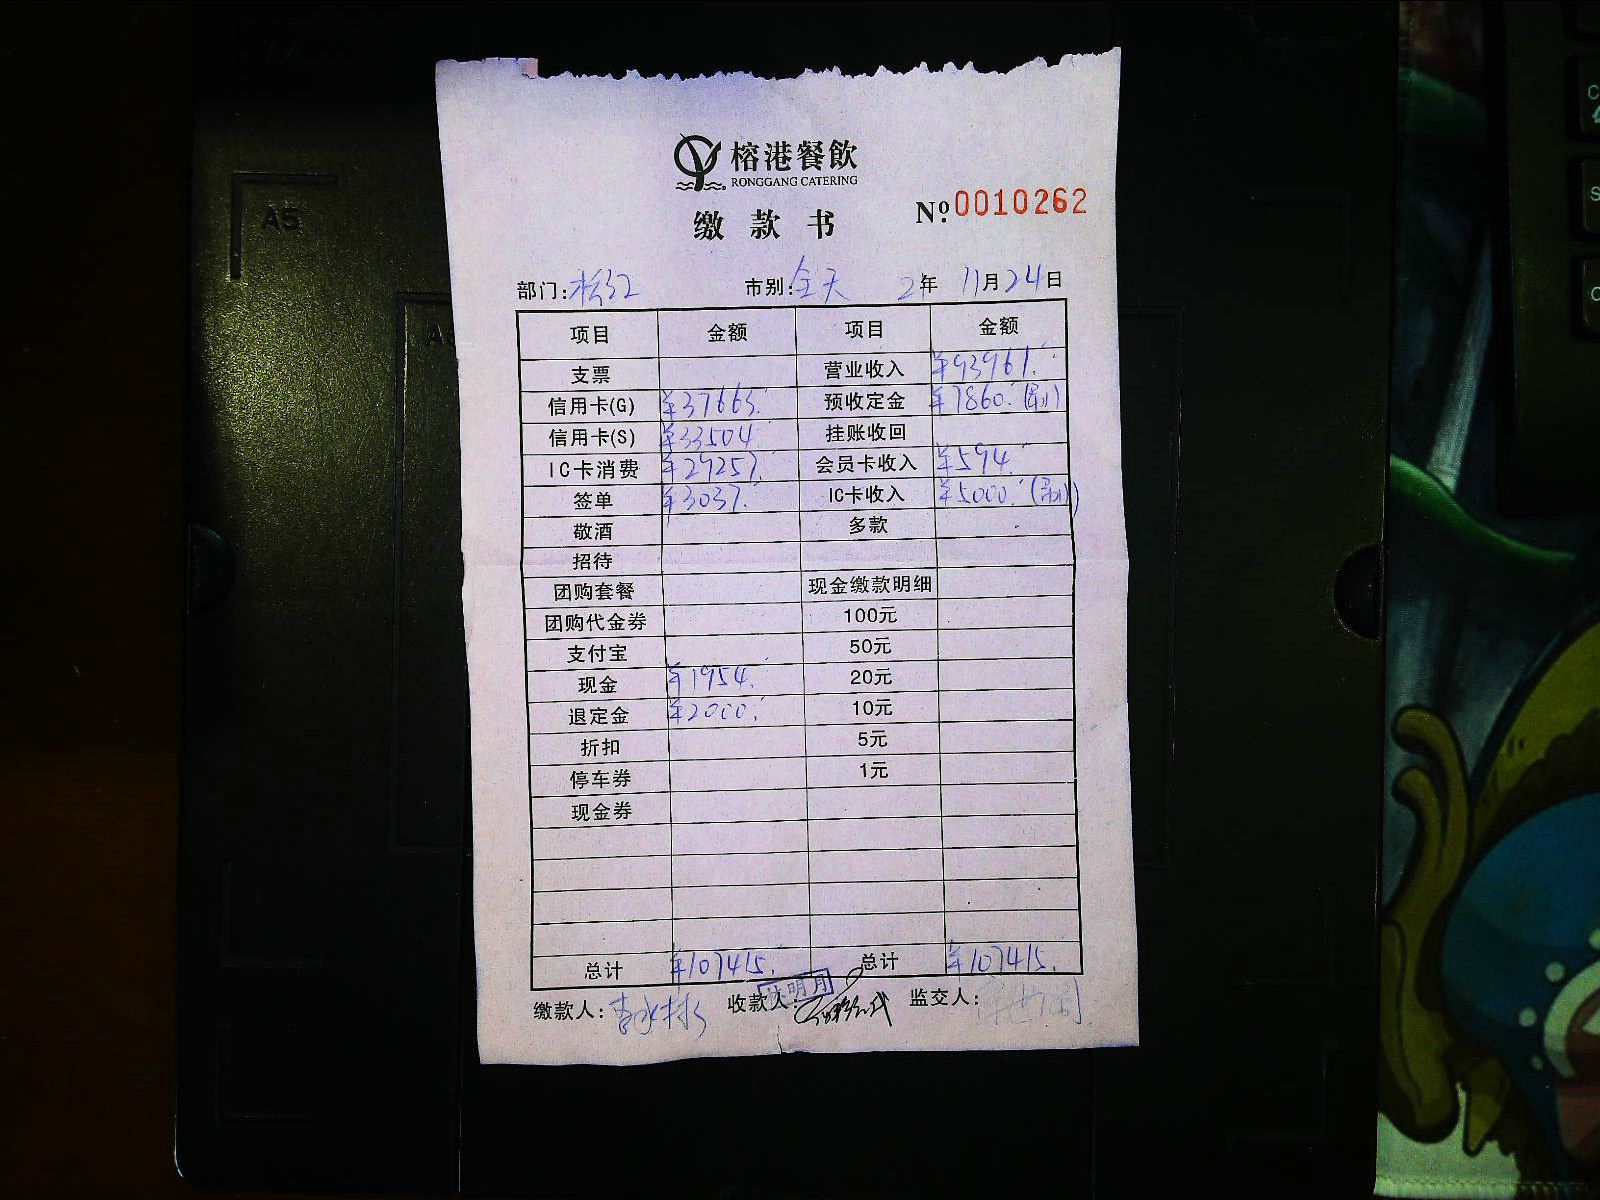 A5
榕港餐飲
RONGGANG CATERING
缴款书
№ 0010262
部门:松江 市别:全天 2年 11月24日
项目 金额 项目 金额
支票 营业收入 ¥93961.
信用卡(G) ¥37663. 预收定金 ¥7860.(刷)
信用卡(S) ¥33504. 挂账收回
IC卡消费 ¥29257. 会员卡收入 ¥594.
签单 ¥3037. IC卡收入 ¥5000.(刷)
敬酒 多款
招待
团购套餐 现金缴款明细
团购代金券 100元
支付宝 50元
现金 ¥1954. 20元
退定金 ¥2000. 10元
折扣 5元
停车券 1元
现金券
总计 ¥107415. 总计 ¥107415.
缴款人: 收款人: 明月 监交人: